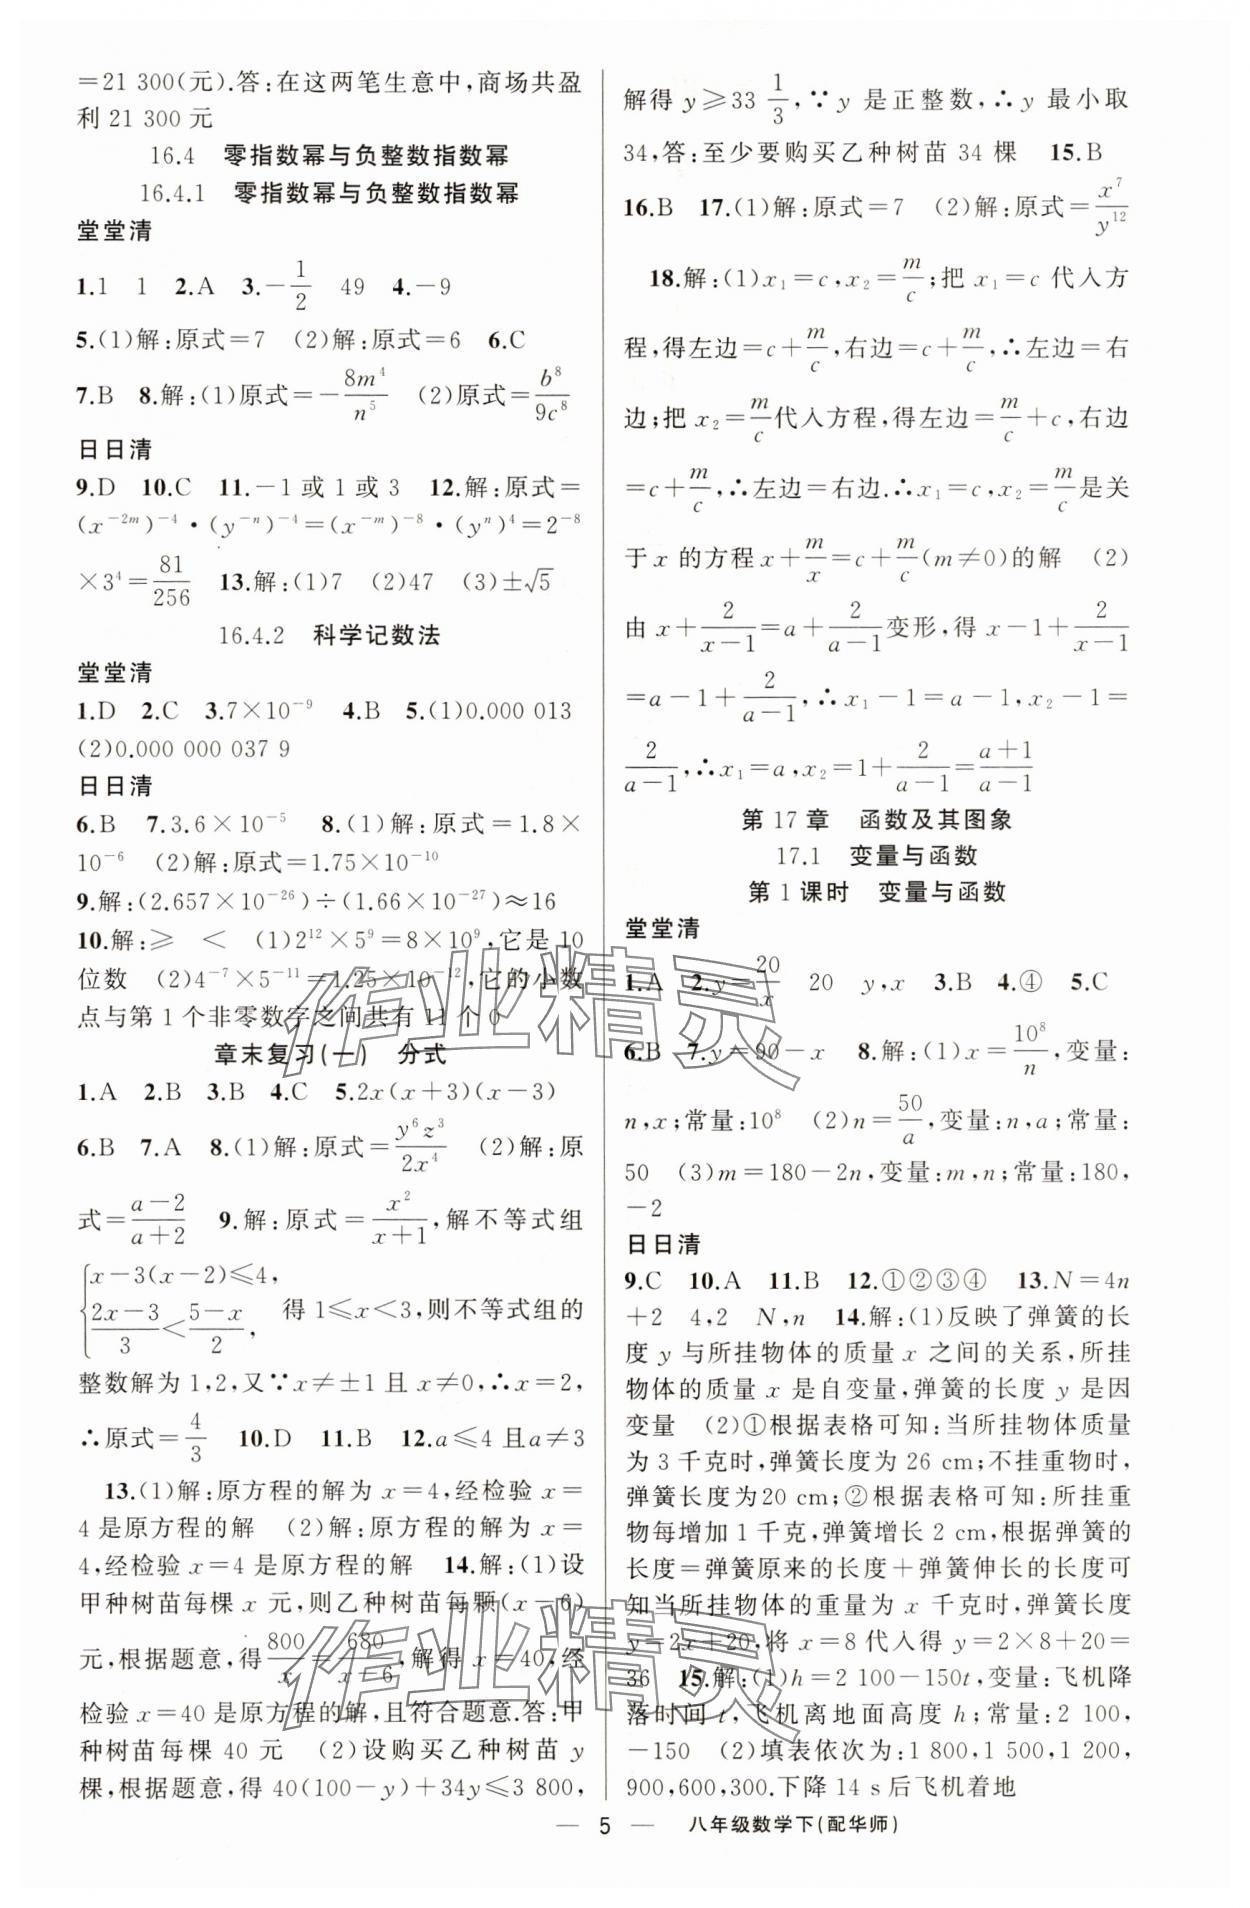 =21 300(元).答:在这两笔生意中,商场共盈
利21 300元
16.4 零指数幂与负整数指数幂
16.4.1 零指数幂与负整数指数幂
堂堂清
1.1 1 2.A 3.-1/2 49 4.-9
5.(1)解:原式=7 (2)解:原式=6 6.C
7.B 8.解:(1)原式=-8m⁴/n⁵ (2)原式=b⁸/9c⁸
日日清
9.D 10.C 11.-1或1或3 12.解:原式=
(x⁻²ᵐ)⁻⁴·(y⁻ⁿ)⁻⁴=(x⁻ᵐ)⁻⁸·(yⁿ)⁴=2⁻⁸
×3⁴=81/256 13.解:(1)7 (2)47 (3)±√5
16.4.2 科学记数法
堂堂清
1.D 2.C 3.7×10⁻⁹ 4.B 5.(1)0.000 013
(2)0.000 000 037 9
日日清
6.B 7.3.6×10⁻⁵ 8.(1)解:原式=1.8×
10⁻⁶ (2)解:原式=1.75×10⁻¹⁰
9.解:(2.657×10⁻²⁶)÷(1.66×10⁻²⁷)≈16
10.解:≥ < (1)2¹²×5⁹=8×10⁹,它是10
位数 (2)4⁻⁷×5⁻¹¹=1.25×10⁻¹²,它的小数
点与第1个非零数字之间共有11个0
章末复习(一) 分式
1.A 2.B 3.B 4.C 5.2x(x+3)(x-3)
6.B 7.A 8.(1)解:原式=y⁶z³/2x⁴ (2)解:原
式=(a-2)/(a+2) 9.解:原式=x²/(x+1),解不等式组
{x-3(x-2)≤4,
(2x-3)/3<(5-x)/2, 得1≤x<3,则不等式组的
整数解为1,2,又∵x≠±1且x≠0,∴x=2,
∴原式=4/3 10.D 11.B 12.a≤4且a≠3
13.(1)解:原方程的解为x=4,经检验x=
4是原方程的解 (2)解:原方程的解为x=
4,经检验x=4是原方程的解 14.解:(1)设
甲种树苗每棵x元,则乙种树苗每颗(x-6)
元,根据题意,得800/x=680/(x-6),解得x=40,经
检验x=40是原方程的解,且符合题意.答:甲
种树苗每棵40元 (2)设购买乙种树苗y
棵,根据题意,得40(100-y)+34y≤3 800,
解得y≥33 1/3,∵y是正整数,∴y最小取
34,答:至少要购买乙种树苗34棵 15.B
16.B 17.(1)解:原式=7 (2)解:原式=x⁷/y¹²
18.解:(1)x₁=c,x₂=m/c;把x₁=c代入方
程,得左边=c+m/c,右边=c+m/c,∴左边=右
边;把x₂=m/c代入方程,得左边=m/c+c,右边
=c+m/c,∴左边=右边.∴x₁=c,x₂=m/c是关
于x的方程x+m/x=c+m/c(m≠0)的解 (2)
由x+2/(x-1)=a+2/(a-1)变形,得x-1+2/(x-1)
=a-1+2/(a-1),∴x₁-1=a-1,x₂-1=
2/(a-1),∴x₁=a,x₂=1+2/(a-1)=(a+1)/(a-1)
第17章 函数及其图象
17.1 变量与函数
第1课时 变量与函数
堂堂清
1.A 2.y=20/x 20 y,x 3.B 4.④ 5.C
6.B 7.y=90-x 8.解:(1)x=10⁸/n,变量:
n,x;常量:10⁸ (2)n=50/a,变量:n,a;常量:
50 (3)m=180-2n,变量:m,n;常量:180,
-2
日日清
9.C 10.A 11.B 12.①②③④ 13.N=4n
+2 4,2 N,n 14.解:(1)反映了弹簧的长
度y与所挂物体的质量x之间的关系,所挂
物体的质量x是自变量,弹簧的长度y是因
变量 (2)①根据表格可知:当所挂物体质量
为3千克时,弹簧长度为26 cm;不挂重物时,
弹簧长度为20 cm;②根据表格可知:所挂重
物每增加1千克,弹簧增长2 cm,根据弹簧的
长度=弹簧原来的长度+弹簧伸长的长度可
知当所挂物体的重量为x千克时,弹簧长度
y=2x+20,将x=8代入得y=2×8+20=
36 15.解:(1)h=2 100-150t,变量:飞机降
落时间t,飞机离地面高度h;常量:2 100,
-150 (2)填表依次为:1 800,1 500,1 200,
900,600,300.下降14 s后飞机着地
作业精灵
作业精灵
— 5 — 八年级数学下(配华师)